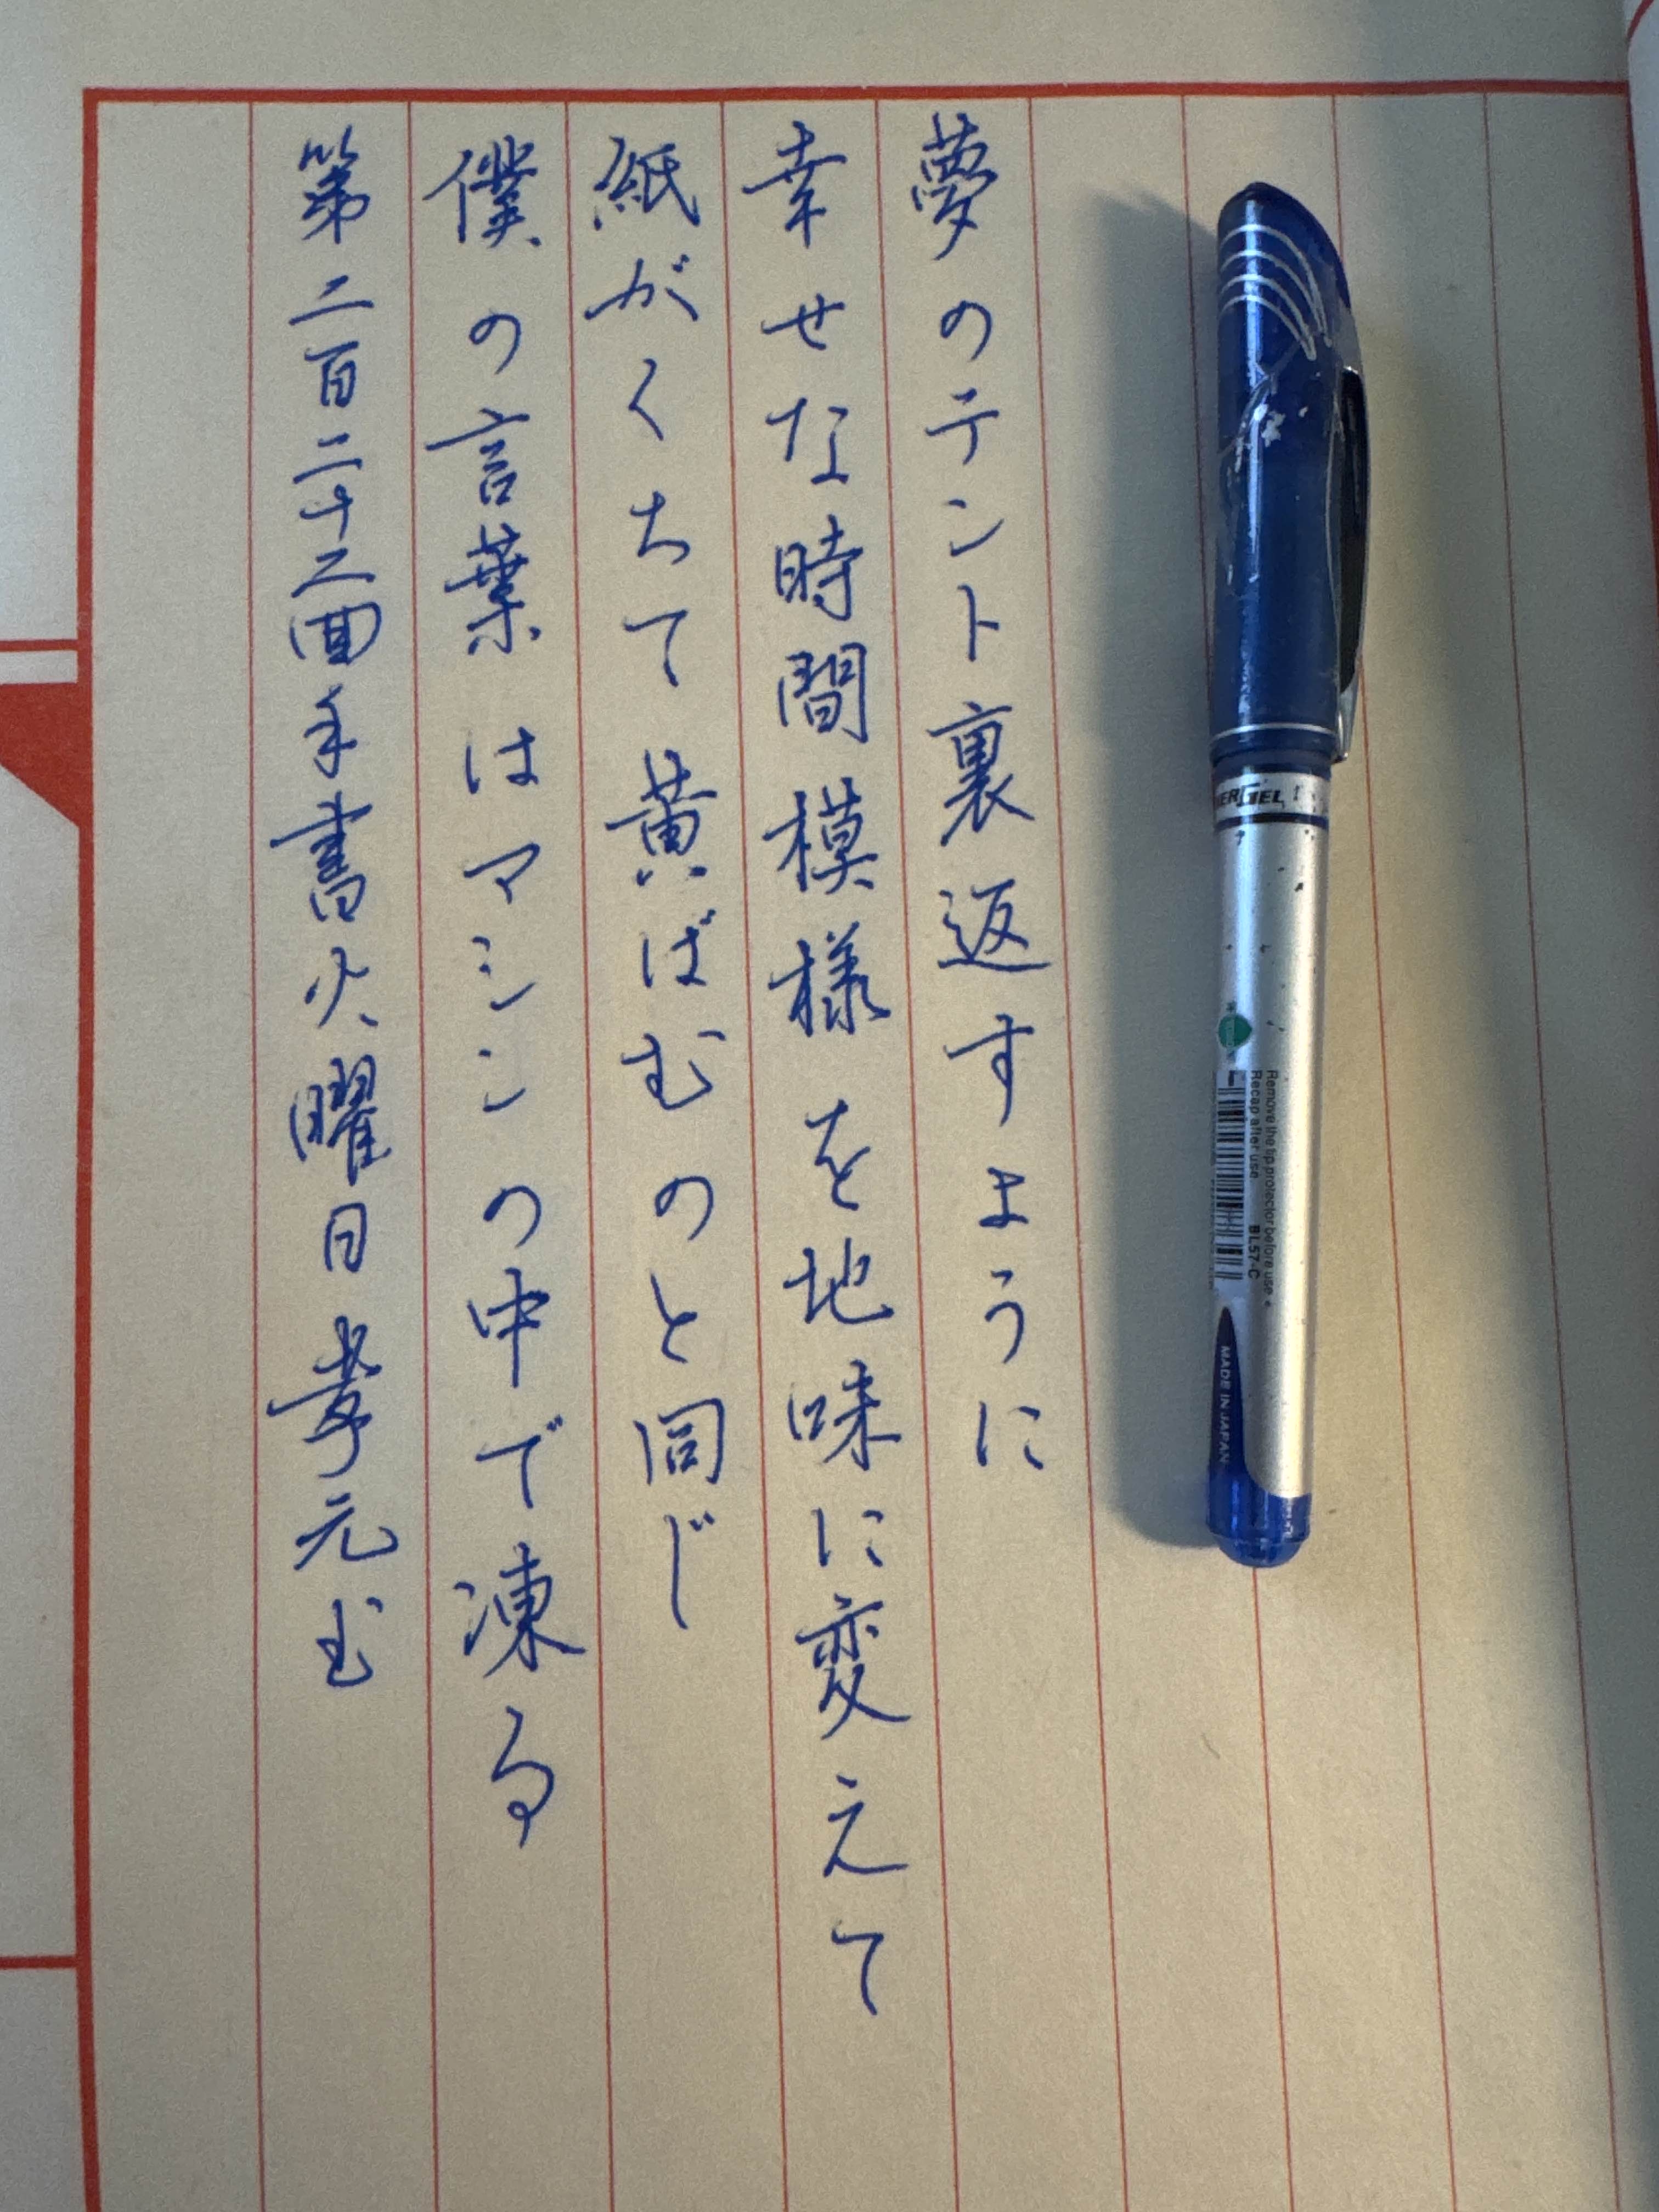 夢のテント裏返すように
幸せな時間模様を地味に変えて
紙がくちて黄ばむのと同じ
僕の言葉はマシンの中で凍る
第二百二十二回手書火曜日
ERGEL
Remove the tip protector before use.
Recap after use
BL57-C
MADE IN JAPAN